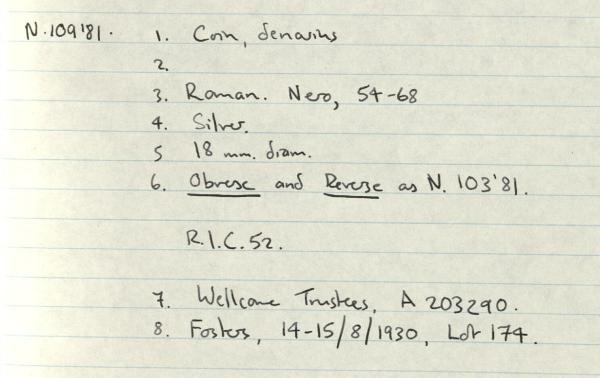 N.109'81. 1. Coin, denarius
2.
3. Roman. Nero, 54-68
4. Silver.
5 18 mm. diam.
6. Obverse and Reverse as N. 103'81.
R.I.C. 52.
7. Wellcome Trustees, A 203290.
8. Fosters, 14-15/8/1930, Lot 174.